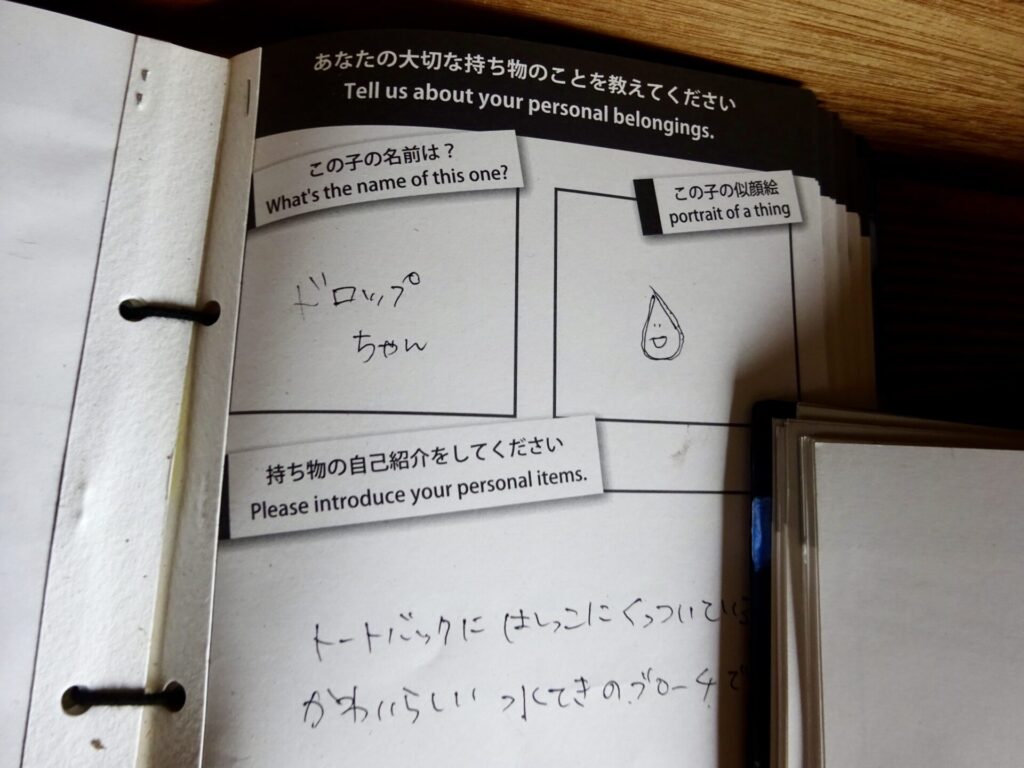 あなたの大切な持ち物のことを教えてください
Tell us about your personal belongings.
この子の名前は？
What's the name of this one?
この子の似顔絵
portrait of a thing
ドロップ
ちゃん
持ち物の自己紹介をしてください
Please introduce your personal items.
トートバックに はしっこにくっついている
かわいらしい 水てきのブローチで